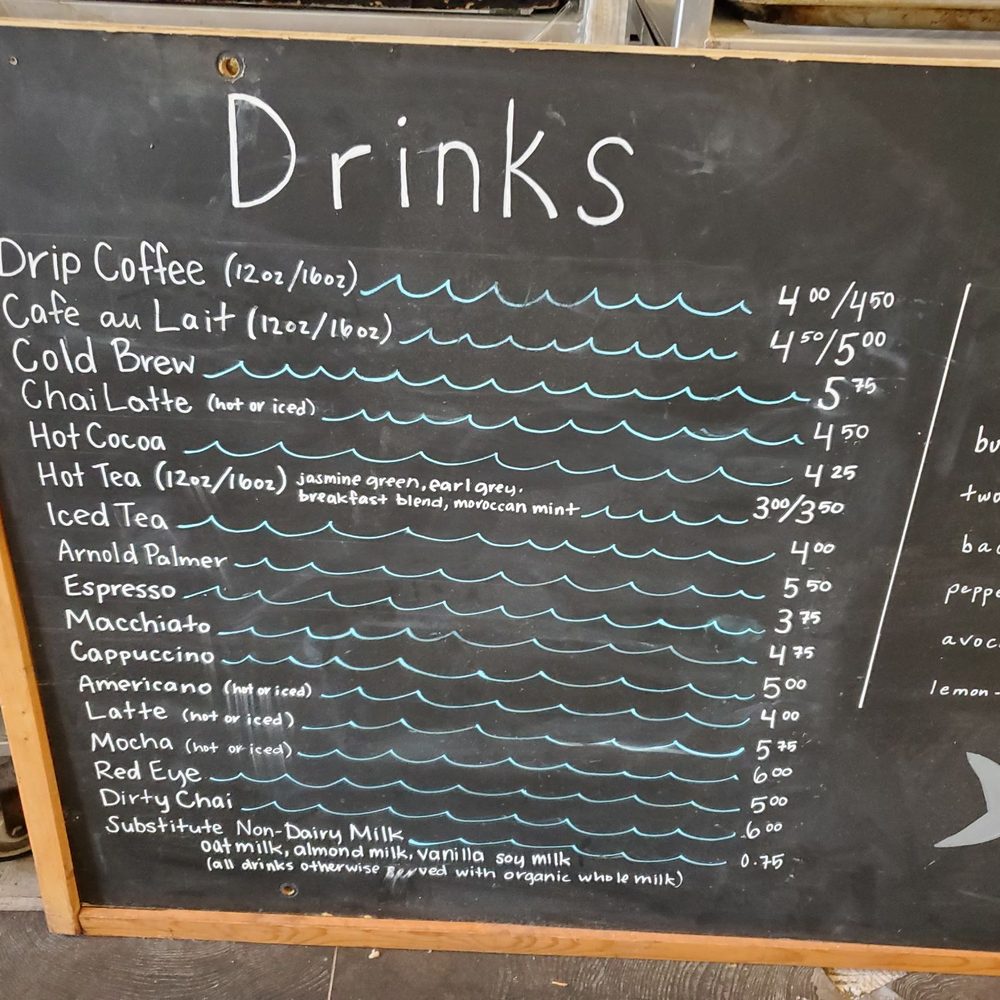 Drinks
Drip Coffee (12oz/16oz) 4 00/4 50
Café au Lait (12oz/16oz) 4 50/5 00
Cold Brew 5 75
Chai Latte (hot or iced) 4 50
Hot Cocoa 4 25
Hot Tea (12oz/16oz) jasmine green, earl grey,
breakfast blend, moroccan mint 3 00/3 50
Iced Tea 4 00
Arnold Palmer 5 50
Espresso 3 75
Macchiato 4 75
Cappuccino 5 00
Americano (hot or iced) 4 00
Latte (hot or iced) 5 75
Mocha (hot or iced) 6 00
Red Eye 5 00
Dirty Chai 6 00
Substitute Non-Dairy Milk 0.75
oat milk, almond milk, vanilla soy milk
(all drinks otherwise served with organic whole milk)
two
lemon-